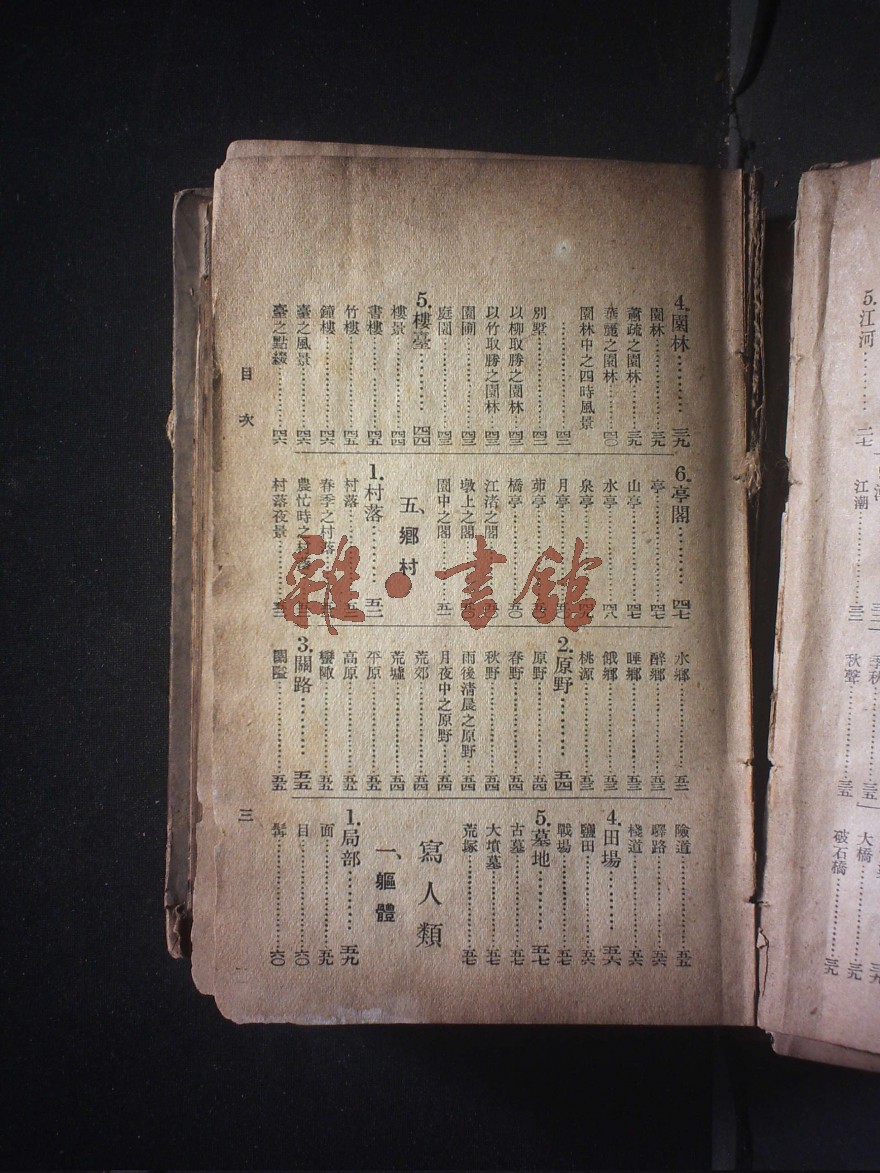 4.園林………三九
園林………三九
蕭疏之園林………三九
華麗之園林………四〇
園林中之四時風景
………四三
別墅………四三
以柳取勝之園林………四三
以竹取勝之園林………四三
園圃………四三
庭園………四三
5.樓臺………四四
樓景………四四
書樓………四五
竹樓………四五
鐘樓………四六
臺之風景………四六
臺之點綴………四六
6.亭閣………四七
亭………四七
山亭………四七
水亭………四八
泉亭………四九
月亭
茆亭
橋亭………五〇
江渚之閣………五〇
墩上之閣………五〇
閣中之閣………五一
五、鄉村
1.村落………五二
村落
春季之村落
農忙時之村落
村落夜景
水鄉………五三
醉鄉………五三
睡鄉………五三
餓鄉………五三
桃源………五三
2.原野………五四
原野………五四
春野………五四
秋野………五四
雨後清晨之原野………五四
月夜中之原野………五四
荒郊………五四
荒墟………五四
平原………五五
高原………五五
蠻陬………五五
3.關路………五五
關隘………五五
險道………五五
驛路………五六
棧道………五六
4.田場………五六
鹽田………五六
戰場………五七
5.墓地………五七
古墓………五七
大墳墓………五七
荒塚………五七
寫人類
一、軀體
1.局部………五九
面………五九
目………六〇
髯………六〇
目次
三
雜·書館
5.江河………二七
江潮
秋聲………三五
大橋………三九
破石橋………三九